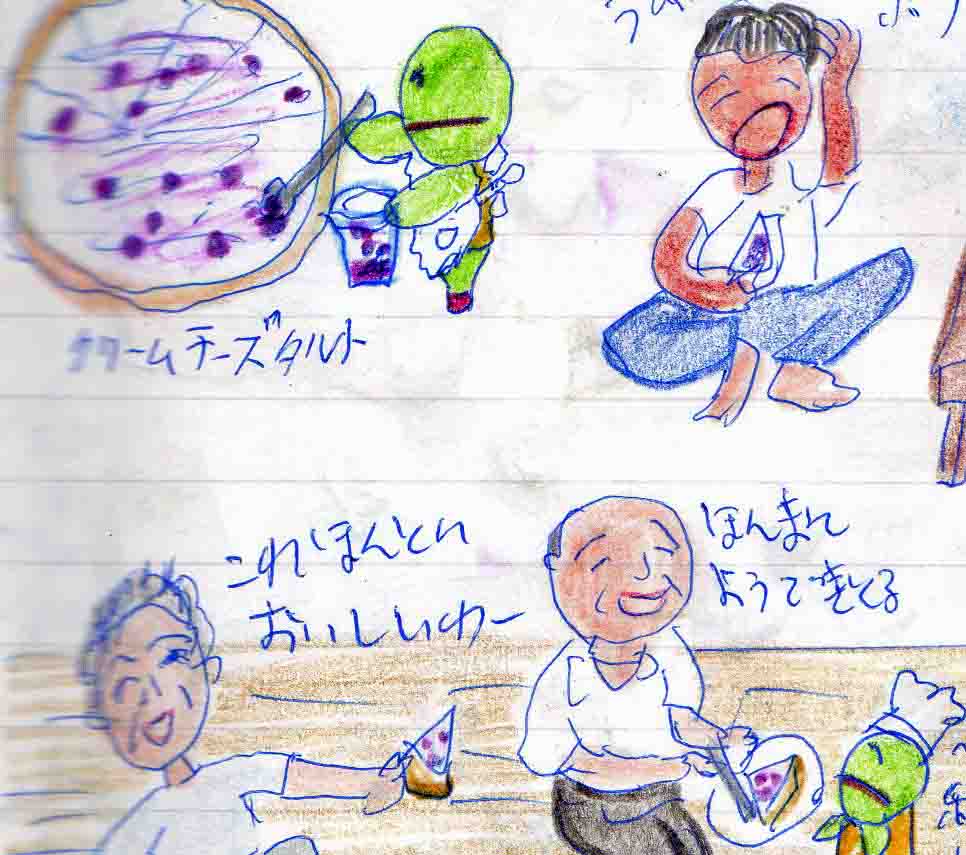 クリームチーズタルト
これほんとに
おいしいわー
ほんまに
ようできとる